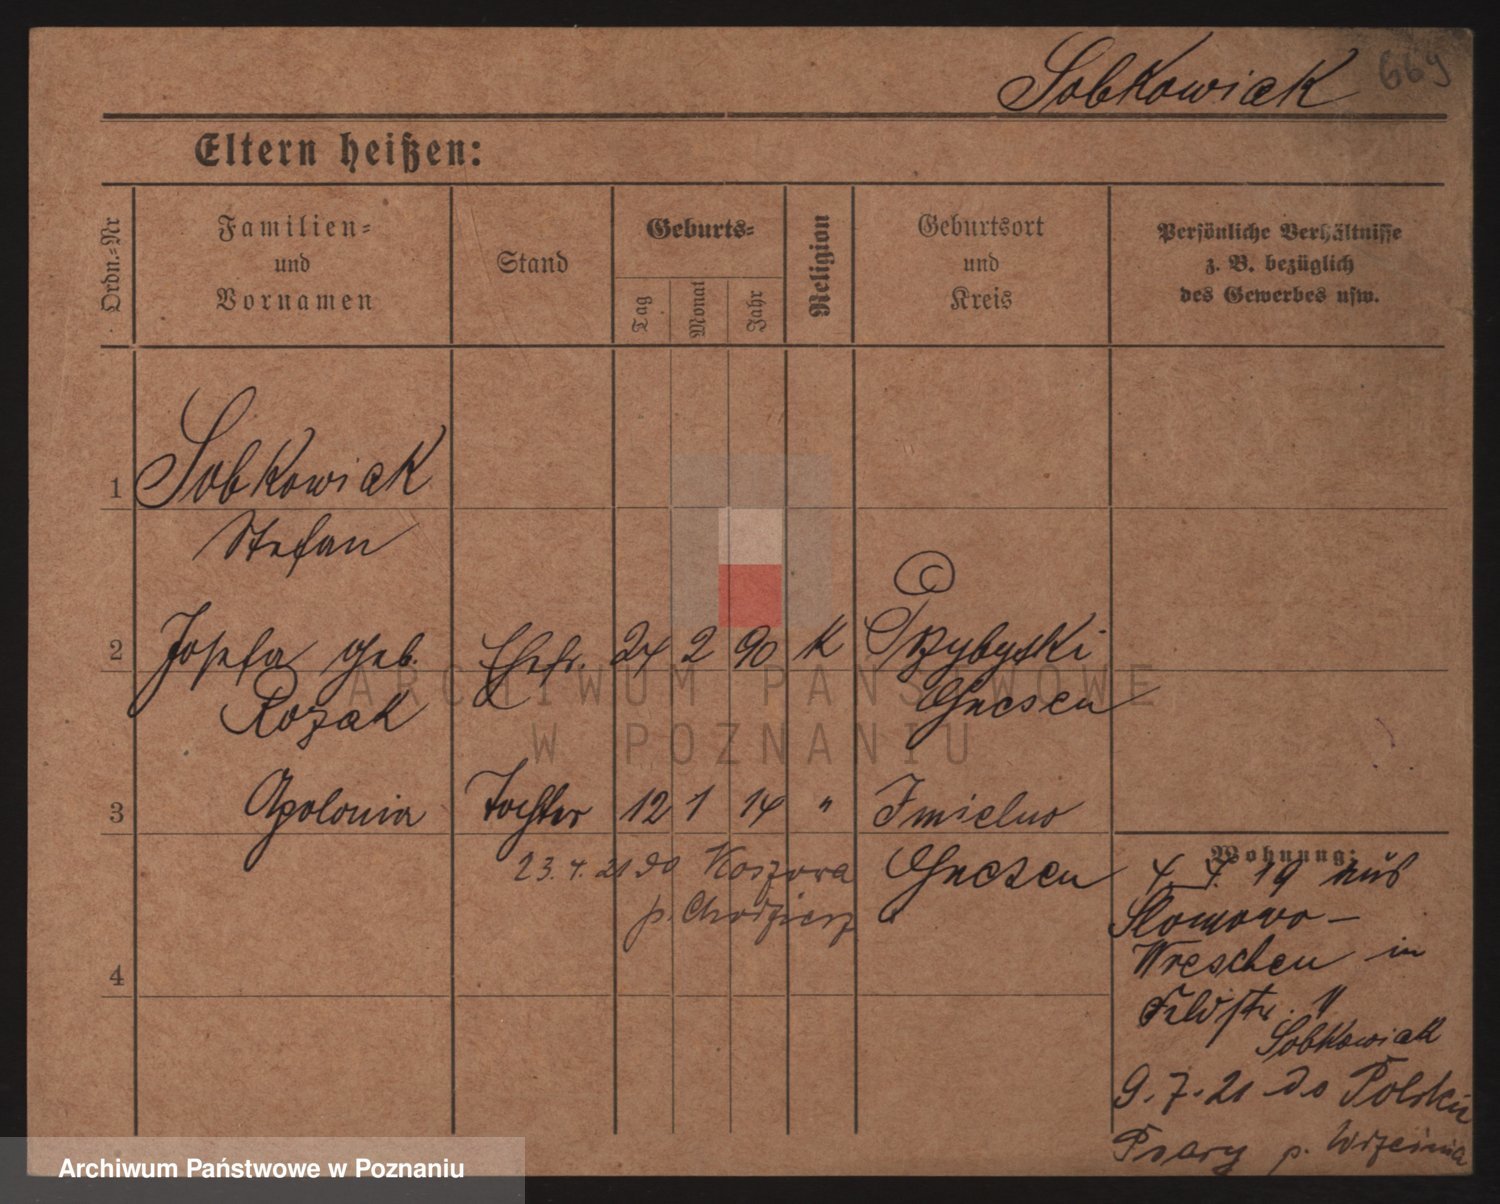 Sobkowiak 669
Eltern heißen:
Ordn.-Nr
Familien-
und
Vornamen
Stand
Geburts-
Tag
Monat
Jahr
Religion
Geburtsort
und
Kreis
Persönliche Verhältnisse
z. B. bezüglich
des Gewerbes usw.
1 Sobkowiak
Stefan
2 Josefa geb. Ehefr. 24 2 90 K Przybyski
Rozak Gnesen
3 Apolonia Tochter 12 1 14 " Imielno
Gnesen
23.4.21 do Koszora
p. Chodzież
4
Wohnung:
4. 4. 19 aus
Slomowo-
Wreschen in
Feldstr. 11
Sobkowiak
9.7.21 do Polskie
Psary p. Września
ARCHIWUM PAŃSTWOWE
W POZNANIU
Archiwum Państwowe w Poznaniu